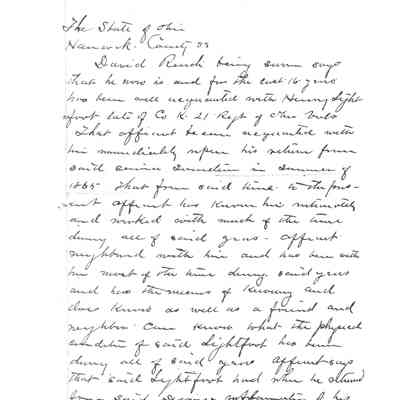 The State of Ohio
Hancock County ss
David Rench being sworn says
that he now is and for the last 16 years
has been well acquainted with Henry Light
foot late of Co K. 21 Regt of Ohio Vols
That affiant became acquainted with
him immediately upon his return from
said service sometime in summer of
1865 That from said time to the pre-
sent affiant has known him intimately
and worked with much of the time
during all of said years - affiant
neighbored with him and has been with
him most of the time during said years
and has the means of knowing and
does know as well as a friend and
neighbor can know what the physical
condition of said Lightfoot has been
during all of said years affiant says
that said Lightfoot had when he returned
from said Service of his